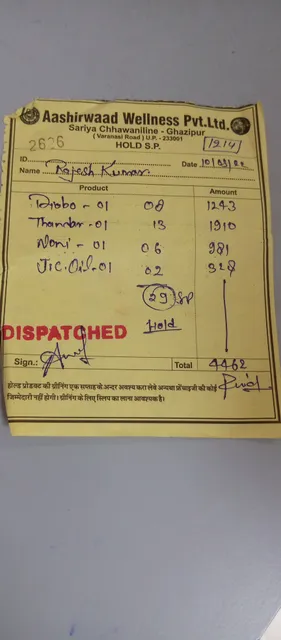 Aashirwaad Wellness Pvt.Ltd.
Sariya Chhawaniline - Ghazipur
( Varanasi Road ) U.P. - 233001
2626 HOLD S.P. 1214
ID
Name Rajesh Kumar Date 10/03/22
Product Amount
Diabo - 01 08 1243
Thandar - 01 13 1910
Noni - 01 06 981
Jic. Oil - 01 02 328
29 SP
Hold
DISPATCHED
Sign.: Total 4462
होल्ड प्रोडक्ट की ग्रीनिंग एक सप्ताह के अन्दर अवश्य करा लेवे अन्यथा फ्रेंचाइजी की कोई
जिम्मेदारी नहीं होगी। ग्रीनिंग के लिए स्लिप का लाना आवश्यक है।